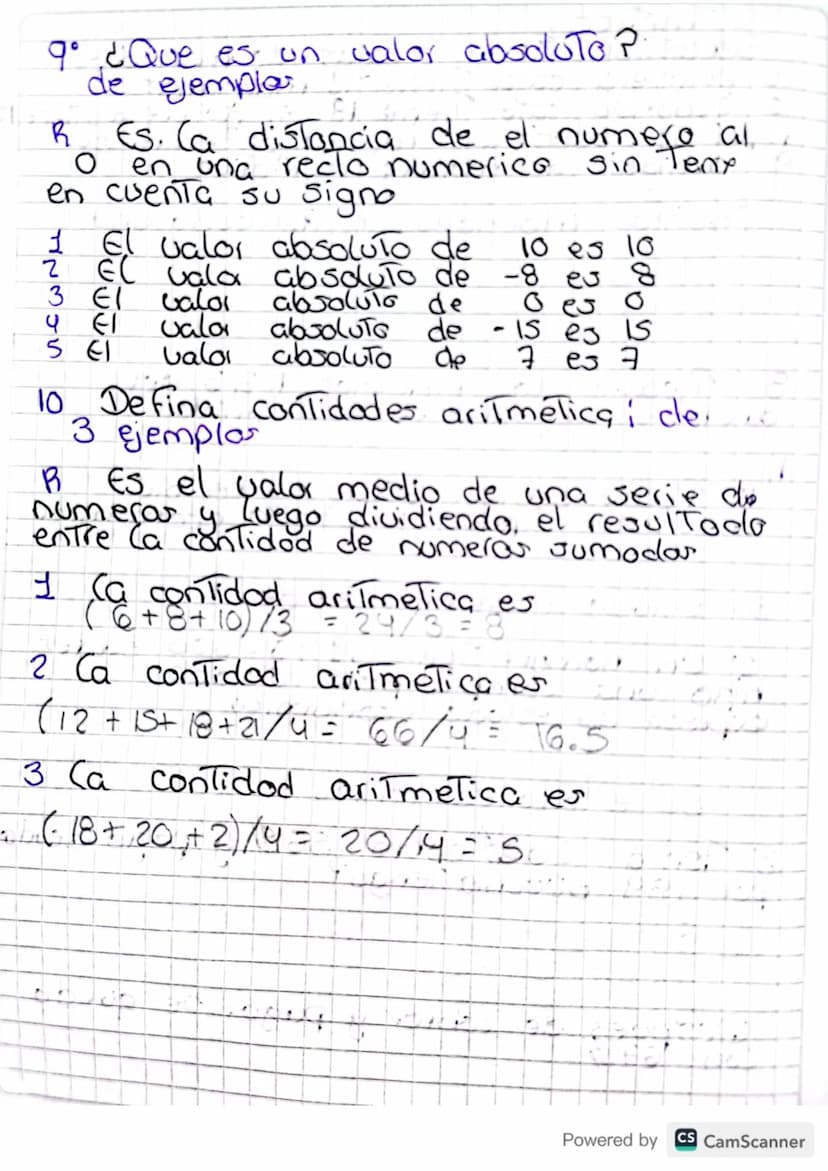 9° ¿Que es un valor absoluto?
de ejemplos
R Es. la distancia de el numero al
0 en una recta numerica sin tener
en cuenta su signo
1 El valor absoluto de 10 es 10
2 El valor absoluto de -8 es 8
3 El valor absoluto de 0 es 0
4 El valor absoluto de -15 es 15
5 El valor absoluto de 7 es 7
10 Defina cantidades aritmetica; de
3 ejemplos
R Es el valor medio de una serie de
numeros y luego dividiendo. el resultado
entre la cantidad de numeros sumados
1 la cantidad aritmetica es
(6+8+10)/3 = 24/3 = 8
2 la cantidad aritmetica es
(12 + 15+ 18+21/4 = 66/4 = 16.5
3 la cantidad aritmetica es
(18+20+2)/4 = 20/4 = 5
Powered by CS CamScanner